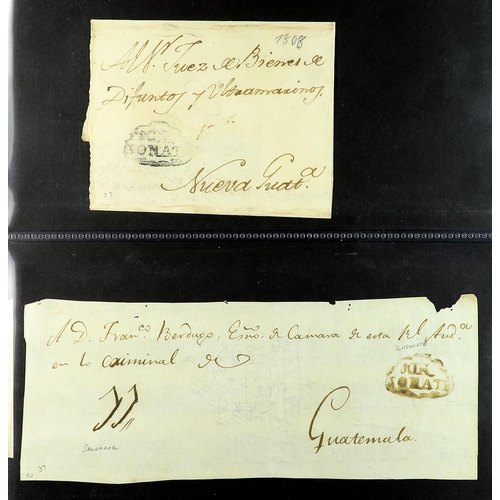 1808
Al Sr. Juez de Bienes de
Difuntos y Ultramarinos.
SONAT
Nueva Guata.
37
A D. Franco. Berdugo, Esno. de Camara de esta Rl. Auda.
en lo criminal de
SONSONATE
SONATE
Guatemala.
SALVADOR
37